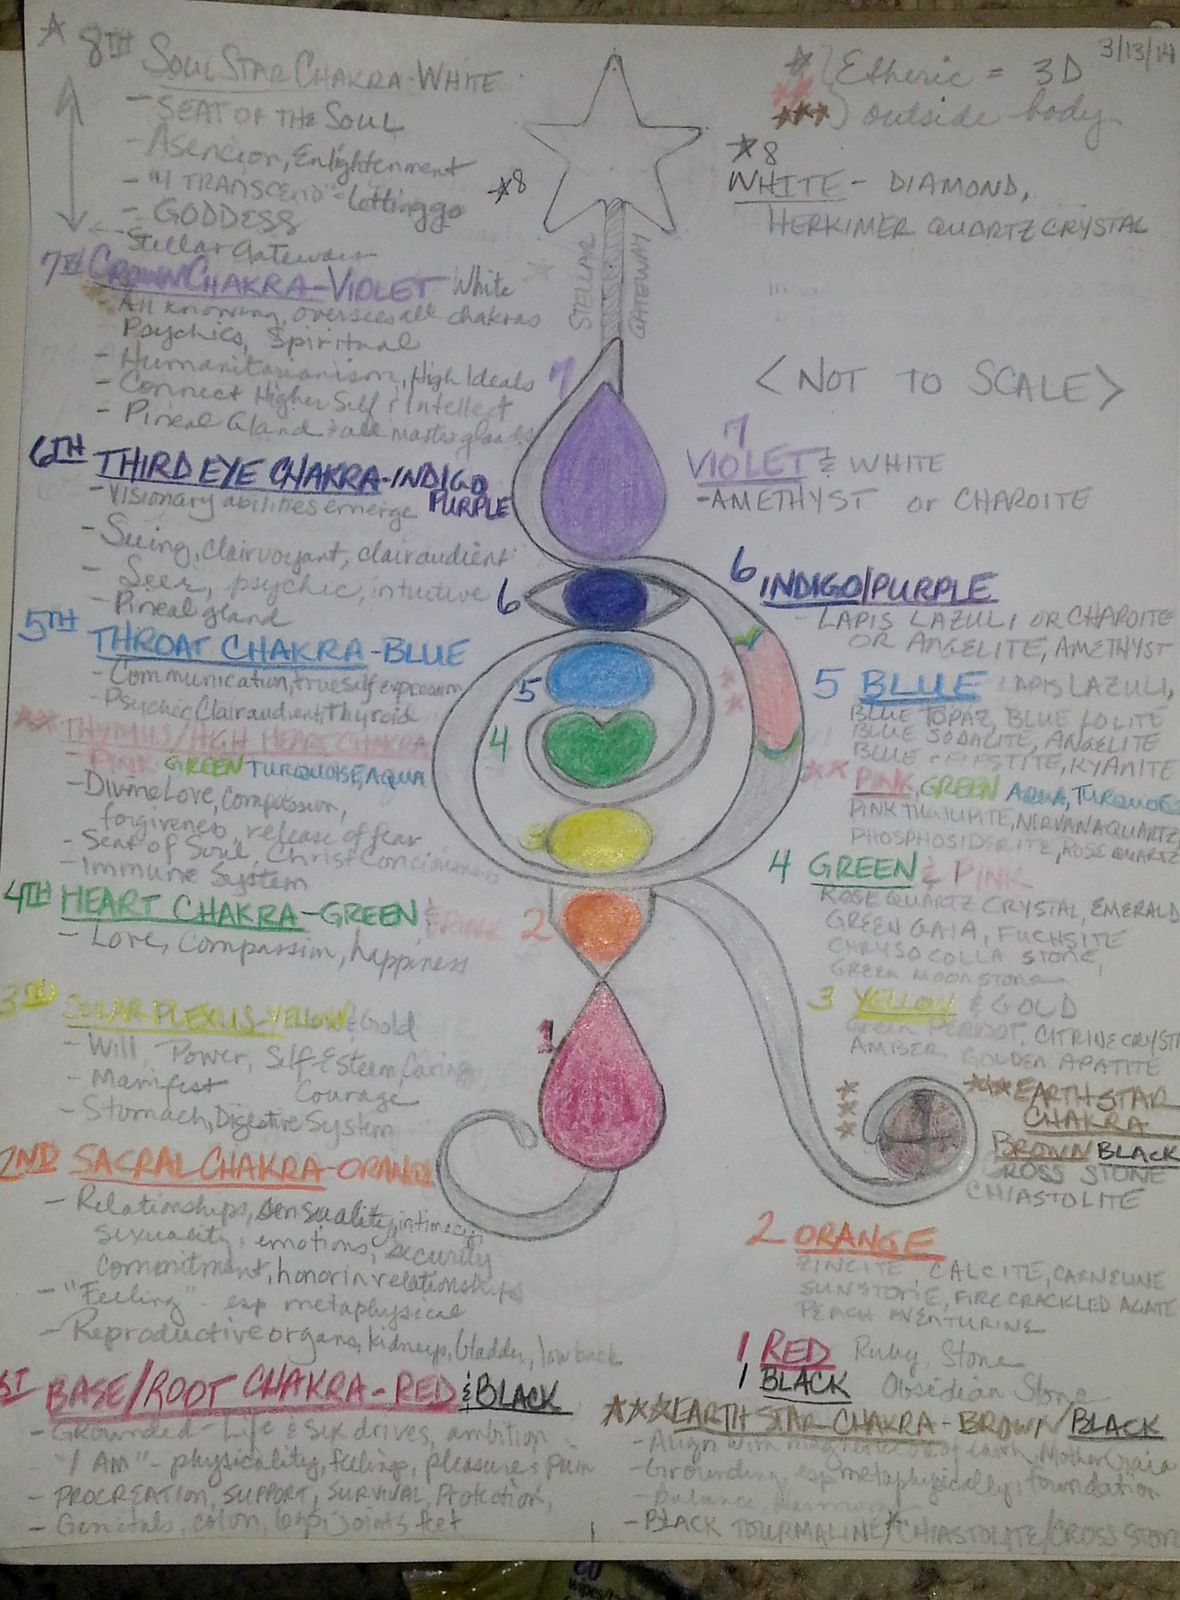 3/13/14
* 8TH SOUL STAR CHAKRA-WHITE
- SEAT OF THE SOUL
- Asencion, Enlightenment
- "I TRANSCEND" - Letting go
- GODDESS
Stellar Gateway
7TH CROWN CHAKRA-VIOLET White
- All knowing, oversees all chakras
Psychics, Spiritual
- Humanitarianism, High Ideals
- Connect Higher Self & Intellect
- Pineal Gland & all master glands
6TH THIRD EYE CHAKRA-INDIGO
PURPLE
- Visionary abilities emerge
- Seeing, clairvoyant, clairaudient
- Seer, psychic, intuitive
- Pineal gland
5TH THROAT CHAKRA-BLUE
- Communication, true self expression
- Psychic Clairaudient, Thyroid
** THYMUS/HIGH HEART CHAKRA
- PINK GREEN TURQUOISE, AQUA
- Divine Love, Compassion,
forgiveness, release of fear
- Seat of Soul, Christ Conciousness
- Immune System
4TH HEART CHAKRA-GREEN & PINK
- Love, Compassion, happiness
3RD SOLAR PLEXUS-YELLOW & Gold
- Will, Power, Self-Esteem, Caring
- Manifest Courage
- Stomach, Digestive System
2ND SACRAL CHAKRA-ORANGE
- Relationships, sensuality, intimacy,
sexuality, emotions, security
commitment, honor in relationships
- "Feeling" - esp metaphysical
- Reproductive organs, kidneys, bladder, low back
BASE/ROOT CHAKRA-RED & BLACK
- Grounded - Life & sex drives, ambition
- "I AM" - physicality, feelings, pleasure & pain
- PROCREATION, SUPPORT, SURVIVAL, PROTECTION,
- Genitals, colon, legs, joints, feet
*8
STELLAR GATEWAY
7
6
5
4
3
2
1
* ** *** Etheric = 3D
outside body
*8
WHITE - DIAMOND,
HERKIMER QUARTZ CRYSTAL
<NOT TO SCALE>
7
VIOLET & WHITE
-AMETHYST or CHAROITE
6 INDIGO/PURPLE
- LAPIS LAZULI OR CHAROITE
OR ANGELITE, AMETHYST
5 BLUE LAPIS LAZULI,
BLUE TOPAZ, BLUE LOLITE
BLUE SODALITE, ANGELITE
BLUE CELESTITE, KYANITE
** PINK, GREEN AQUA, TURQUOISE
NIRVANA QUARTZ,
PHOSPHOSIDERITE, ROSE QUARTZ
4 GREEN & PINK
ROSE QUARTZ CRYSTAL, EMERALD
GREEN GAIA, FUCHSITE
CHRYSOCOLLA STONE,
GREEN MOONSTONE
3 YELLOW & GOLD
Green PERIDOT, CITRINE
AMBER GOLDEN APATITE
*** EARTH STAR
CHAKRA
BROWN/BLACK
CROSS STONE
CHIASTOLITE
2 ORANGE
ZINCITE, CALCITE, CARNELINE
SUNSTONE, FIRE CRACKLED AGATE
PEACH AVENTURINE
1 RED Ruby, Stone
1 BLACK Obsidian Stone
*** EARTH STAR CHAKRA - BROWN/BLACK
- Align with of earth, Mother Gaia
- Grounding, esp metaphysically, foundation
- balance, Harmony
- BLACK TOURMALINE/CHIASTOLATE/CROSS STONE